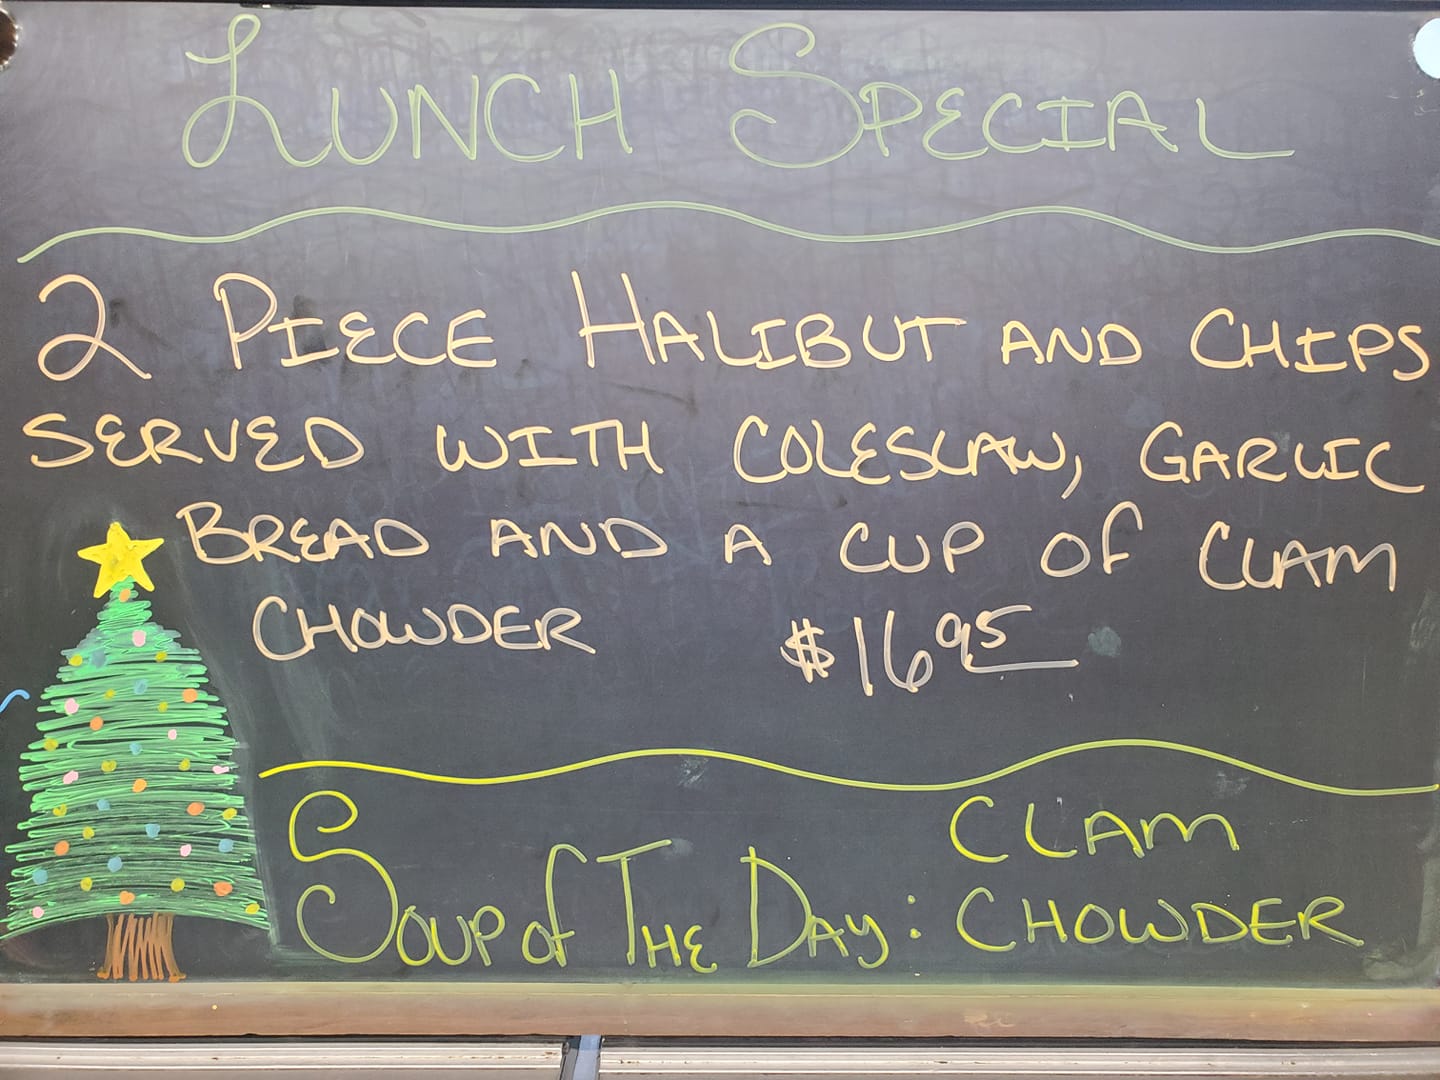 Lunch Special
2 Piece Halibut and Chips
Served with Coleslaw, Garlic
Bread and a cup of Clam
Chowder $16.95
Soup of The Day: Clam
Chowder